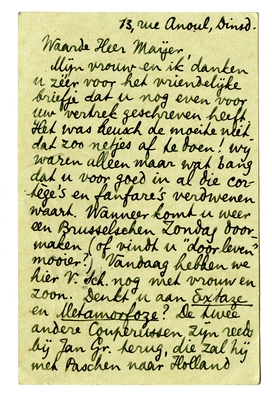 13, rue Anoul, Dinsd.
Waarde Heer Maijer,
Mijn vrouw en ik danken
u zéér voor het vriendelijke
briefje dat u nog even voor
uw vertrek geschreven heeft.
Het was heusch de moeite niet
dat zoo netjes af te doen! wij
waren alleen maar wat bang
dat u voor goed in al die cor-
tège's en fanfare's verdwenen
waart. Wanneer komt u weer
een Brusselschen Zondag door-
maken (of vindt u "doorleven"
mooier?) Vandaag hebben we
hier V. Sch. nog met vrouw en
zoon. Denkt u aan Extaze
en Metamorfoze? De twee
andere Couperussen zijn reeds
bij Jan Gr. terug, die zal hij
met Paschen naar Holland